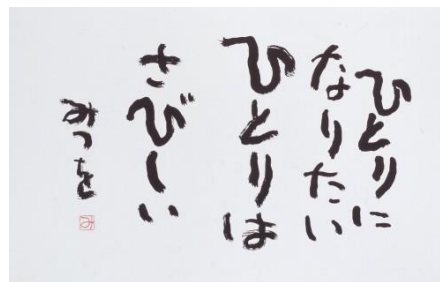 ひとりに
なりたい
ひとりは
さびしい
みつを
み